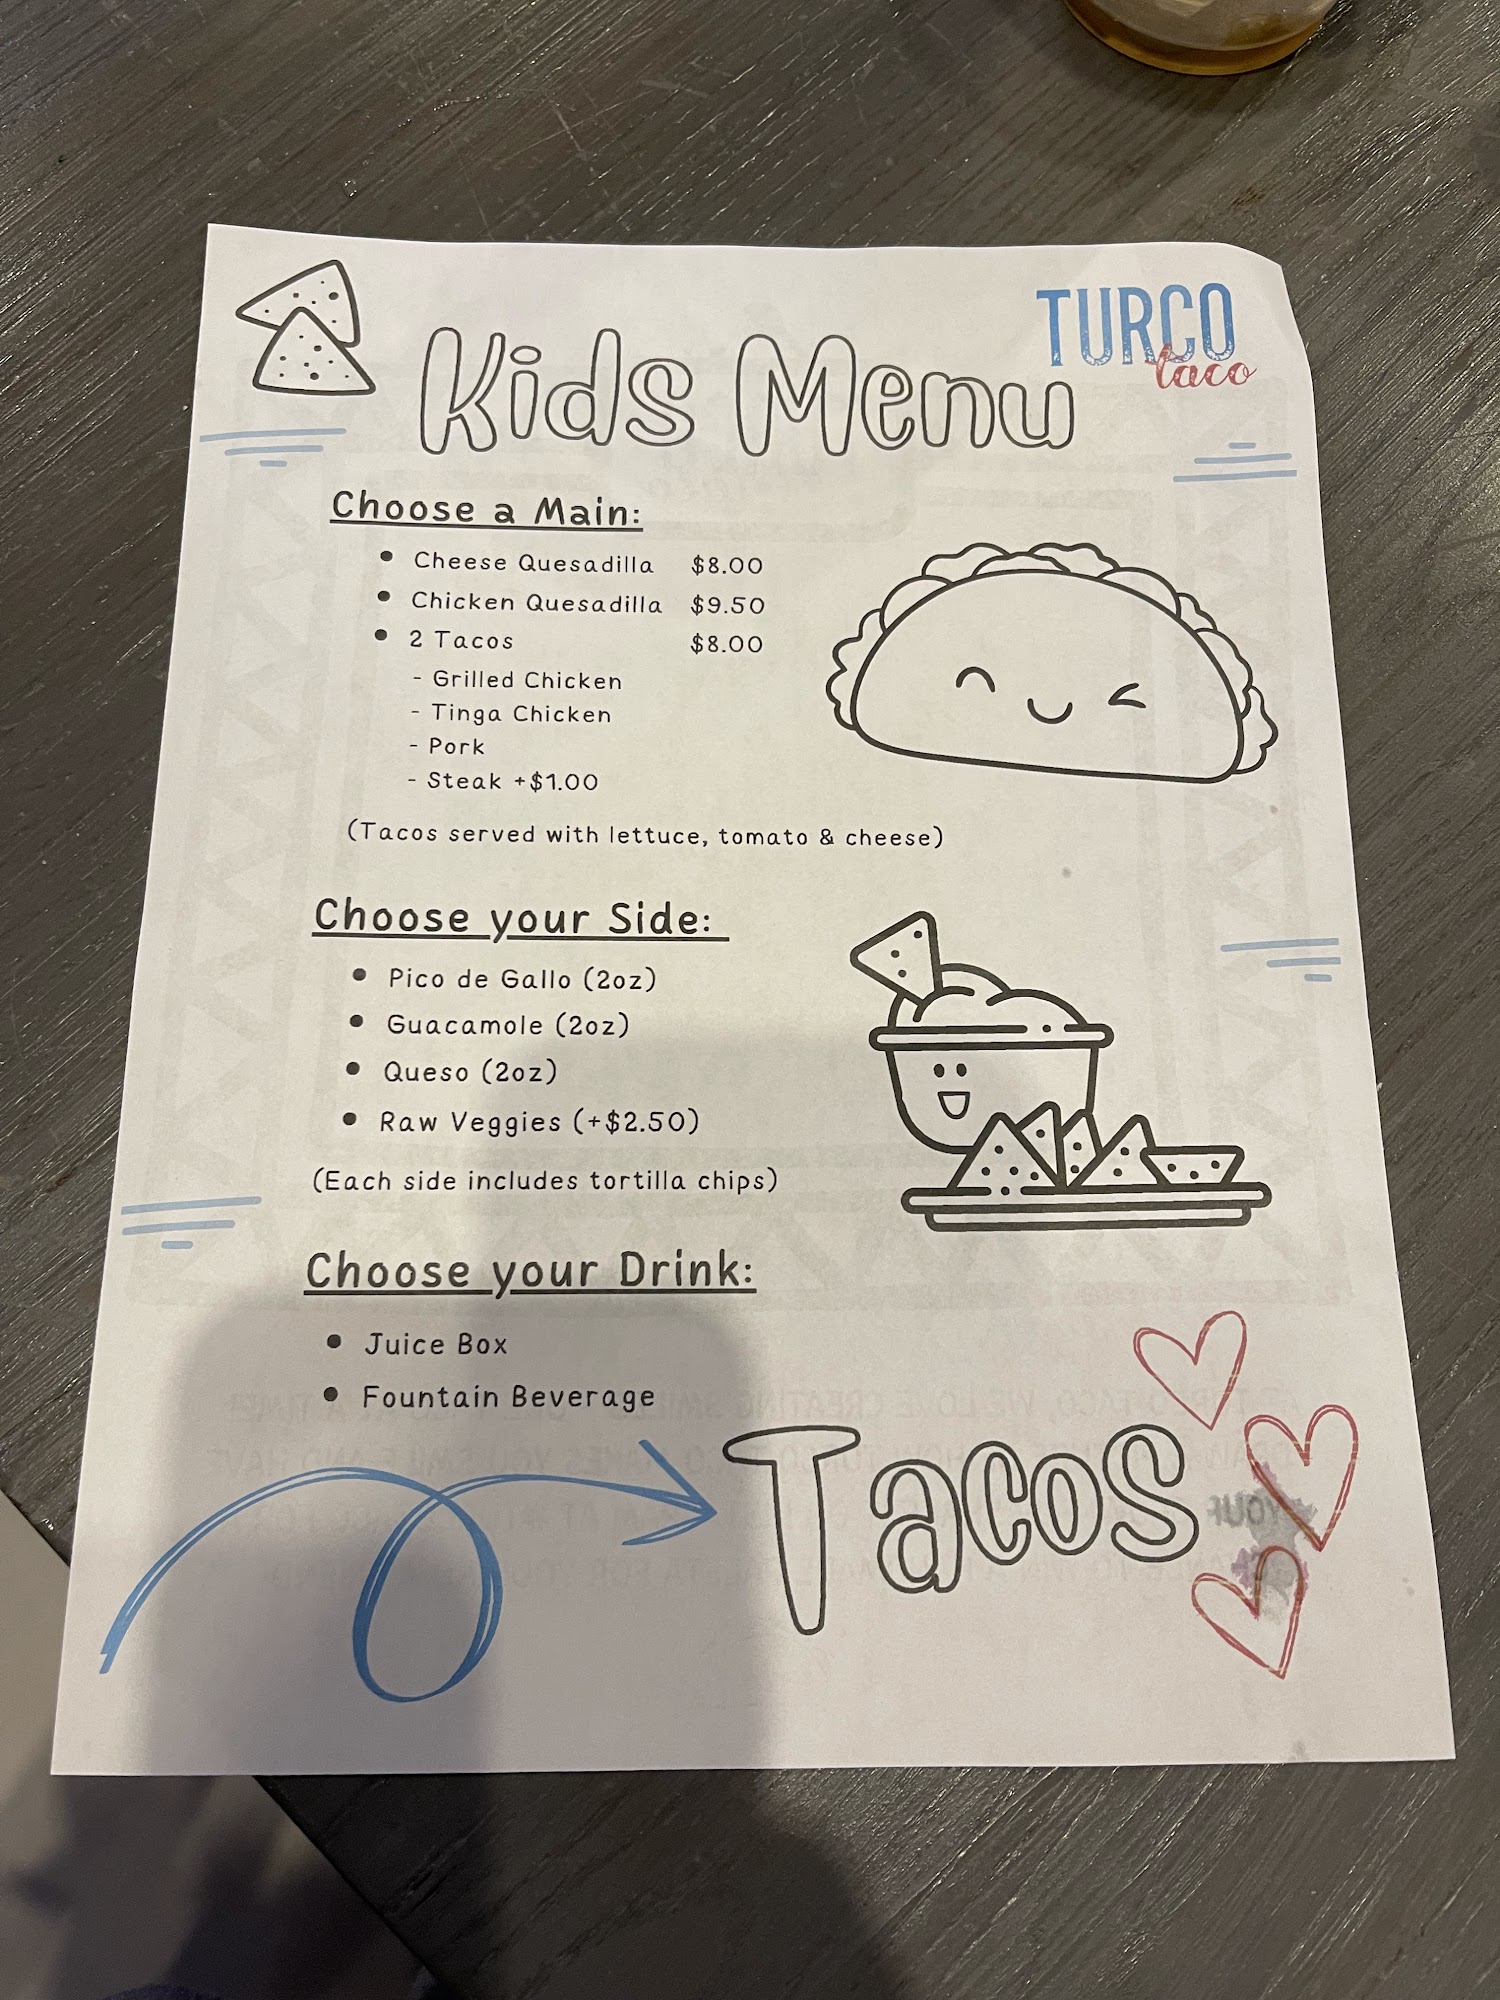 TURCO
taco
Kids Menu
Choose a Main:
• Cheese Quesadilla $8.00
• Chicken Quesadilla $9.50
• 2 Tacos $8.00
- Grilled Chicken
- Tinga Chicken
- Pork
- Steak +$1.00
(Tacos served with lettuce, tomato & cheese)
Choose your Side:
• Pico de Gallo (2oz)
• Guacamole (2oz)
• Queso (2oz)
• Raw Veggies (+$2.50)
(Each side includes tortilla chips)
Choose your Drink:
• Juice Box
• Fountain Beverage
Tacos